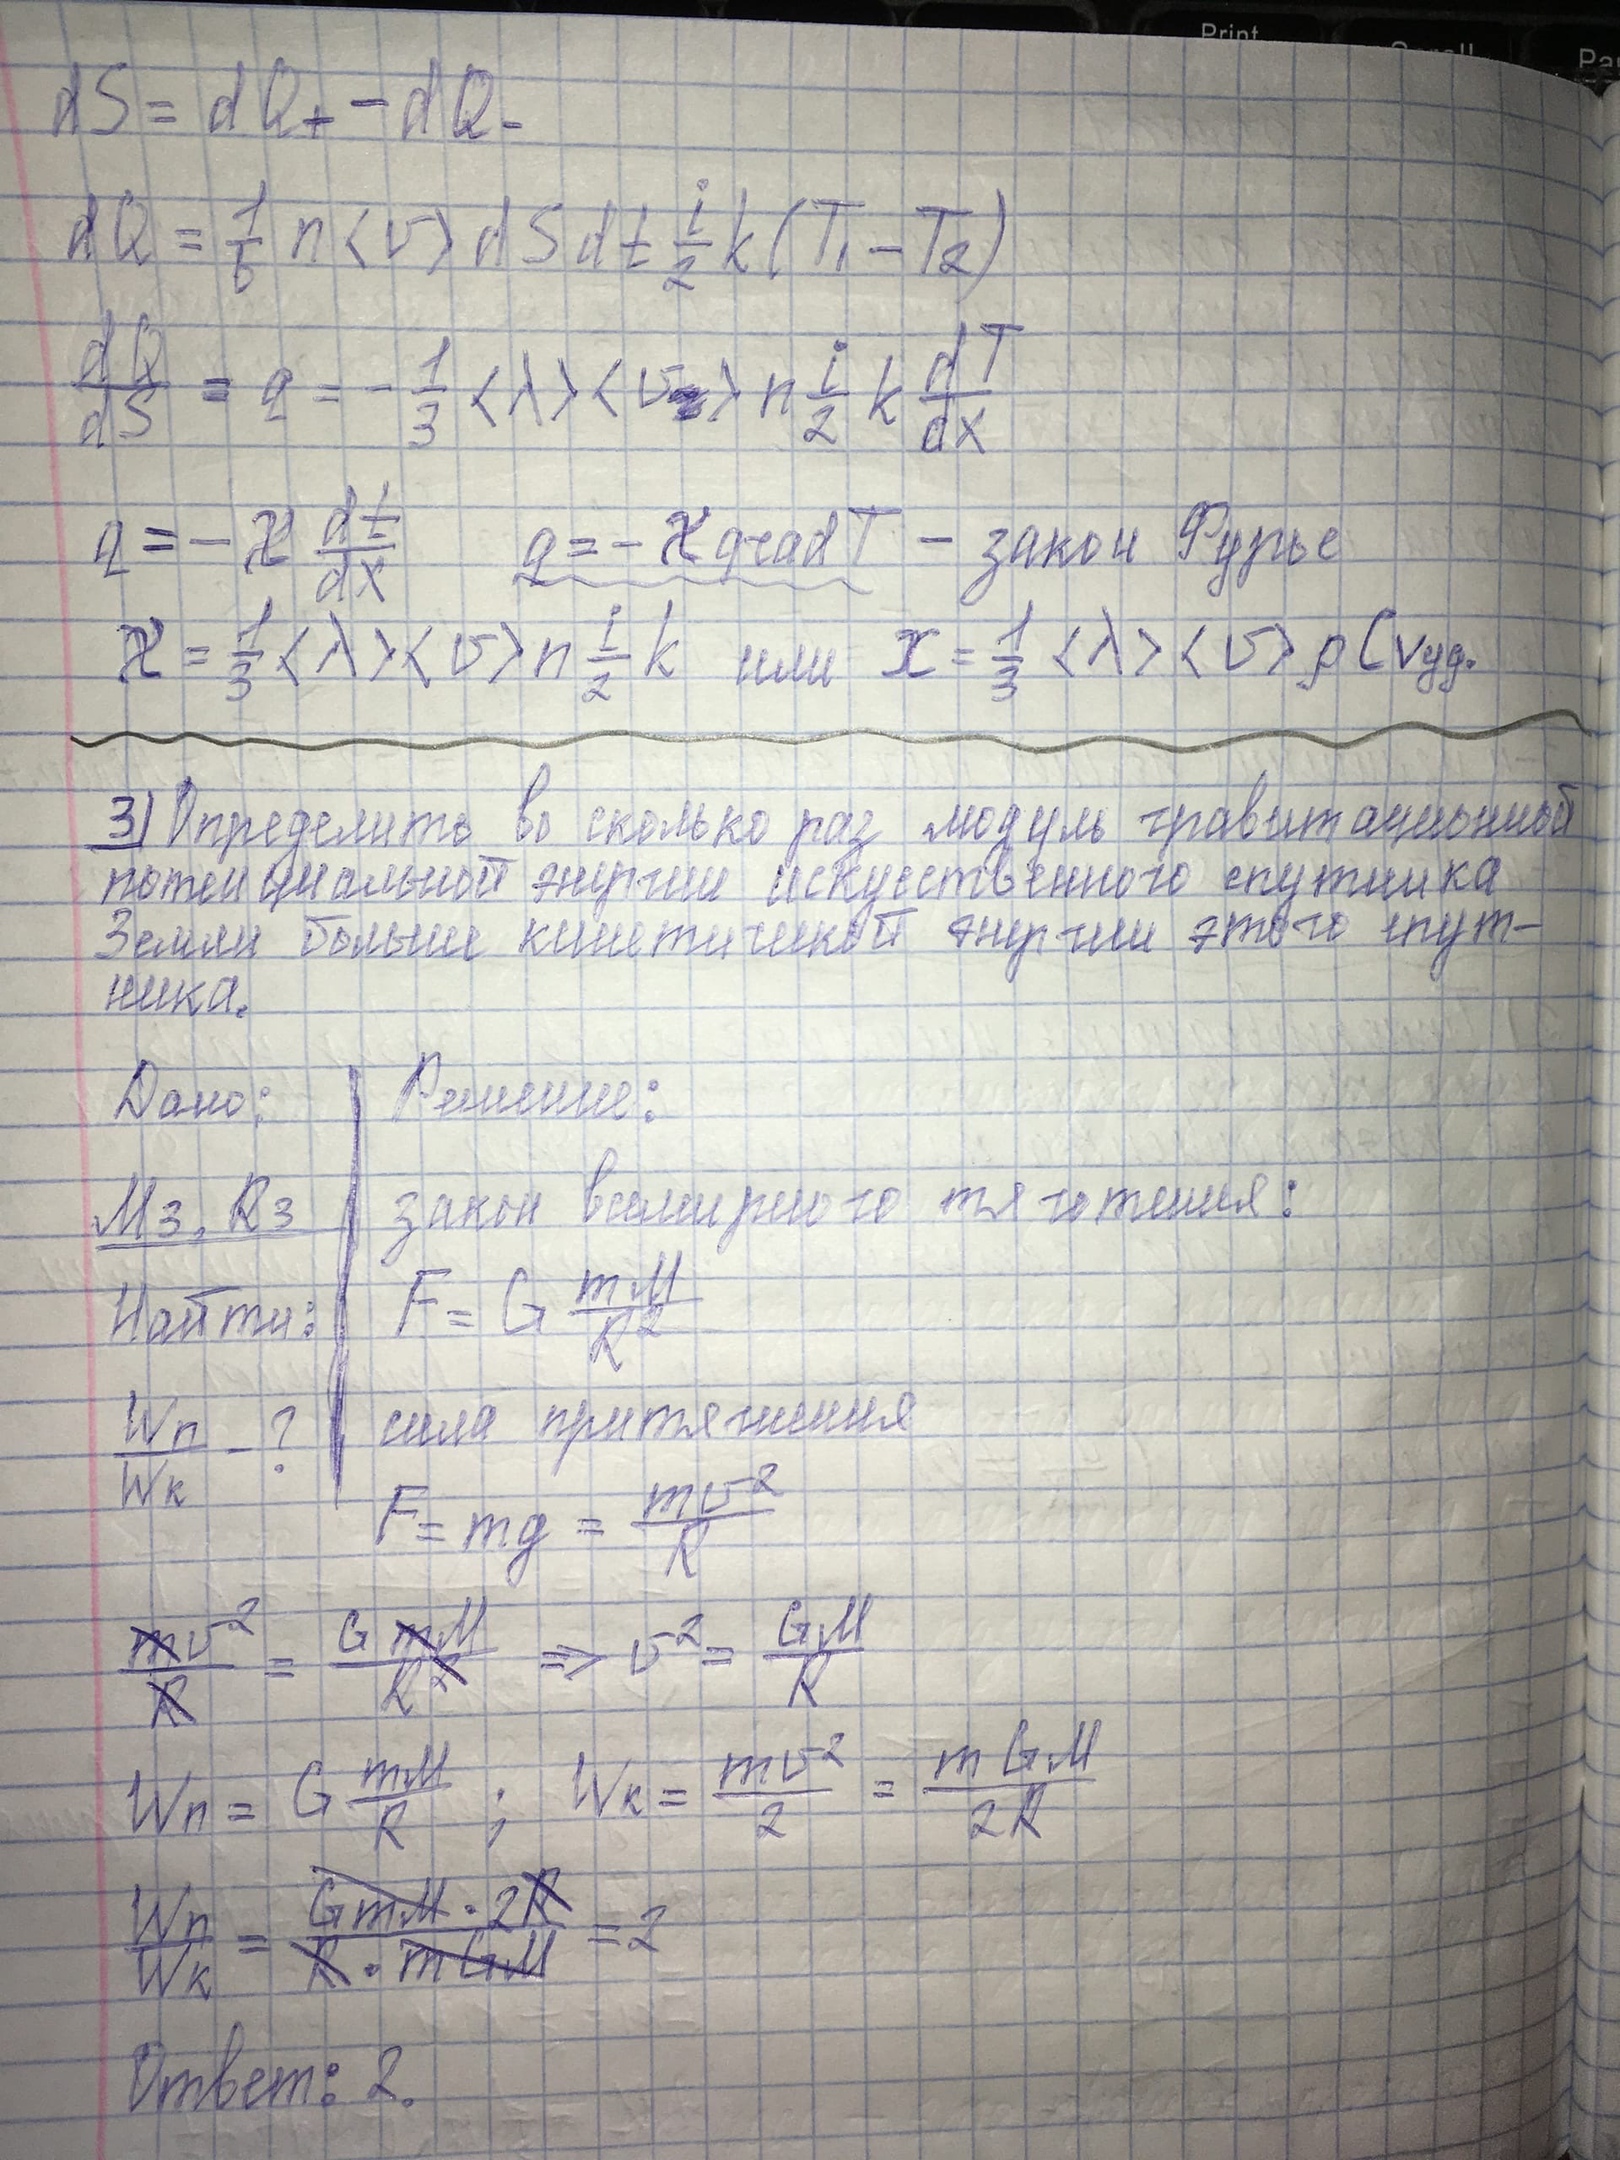 Print
Scroll
Pau
dS = dQ₊ - dQ₋
dQ = 1/6 n <v> dS dt i/2 k (T₁ - T₂)
dQ/dS = q = - 1/3 <λ> <v> n i/2 k dT/dx
q = - ϰ dt/dx q = - ϰ grad T - закон Фурье
ϰ = 1/3 <λ> <v> n i/2 k или ϰ = 1/3 <λ> <v> ρ Cvуд.
3) Определить во сколько раз модуль гравитационной
потенциальной энергии искусственного спутника
Земли больше кинетической энергии этого спут-
ника.
Дано: Решение:
Mз, Rз закон всемирного тяготения:
Найти: F = G mM/R²
Wп/Wк - ? сила притяжения
F = mg = mv²/R
mv²/R = G mM/R² => v² = GM/R
Wп = G mM/R ; Wк = mv²/2 = mGM/2R
Wп/Wк = GmM · 2R / R · mGM = 2
Ответ: 2.